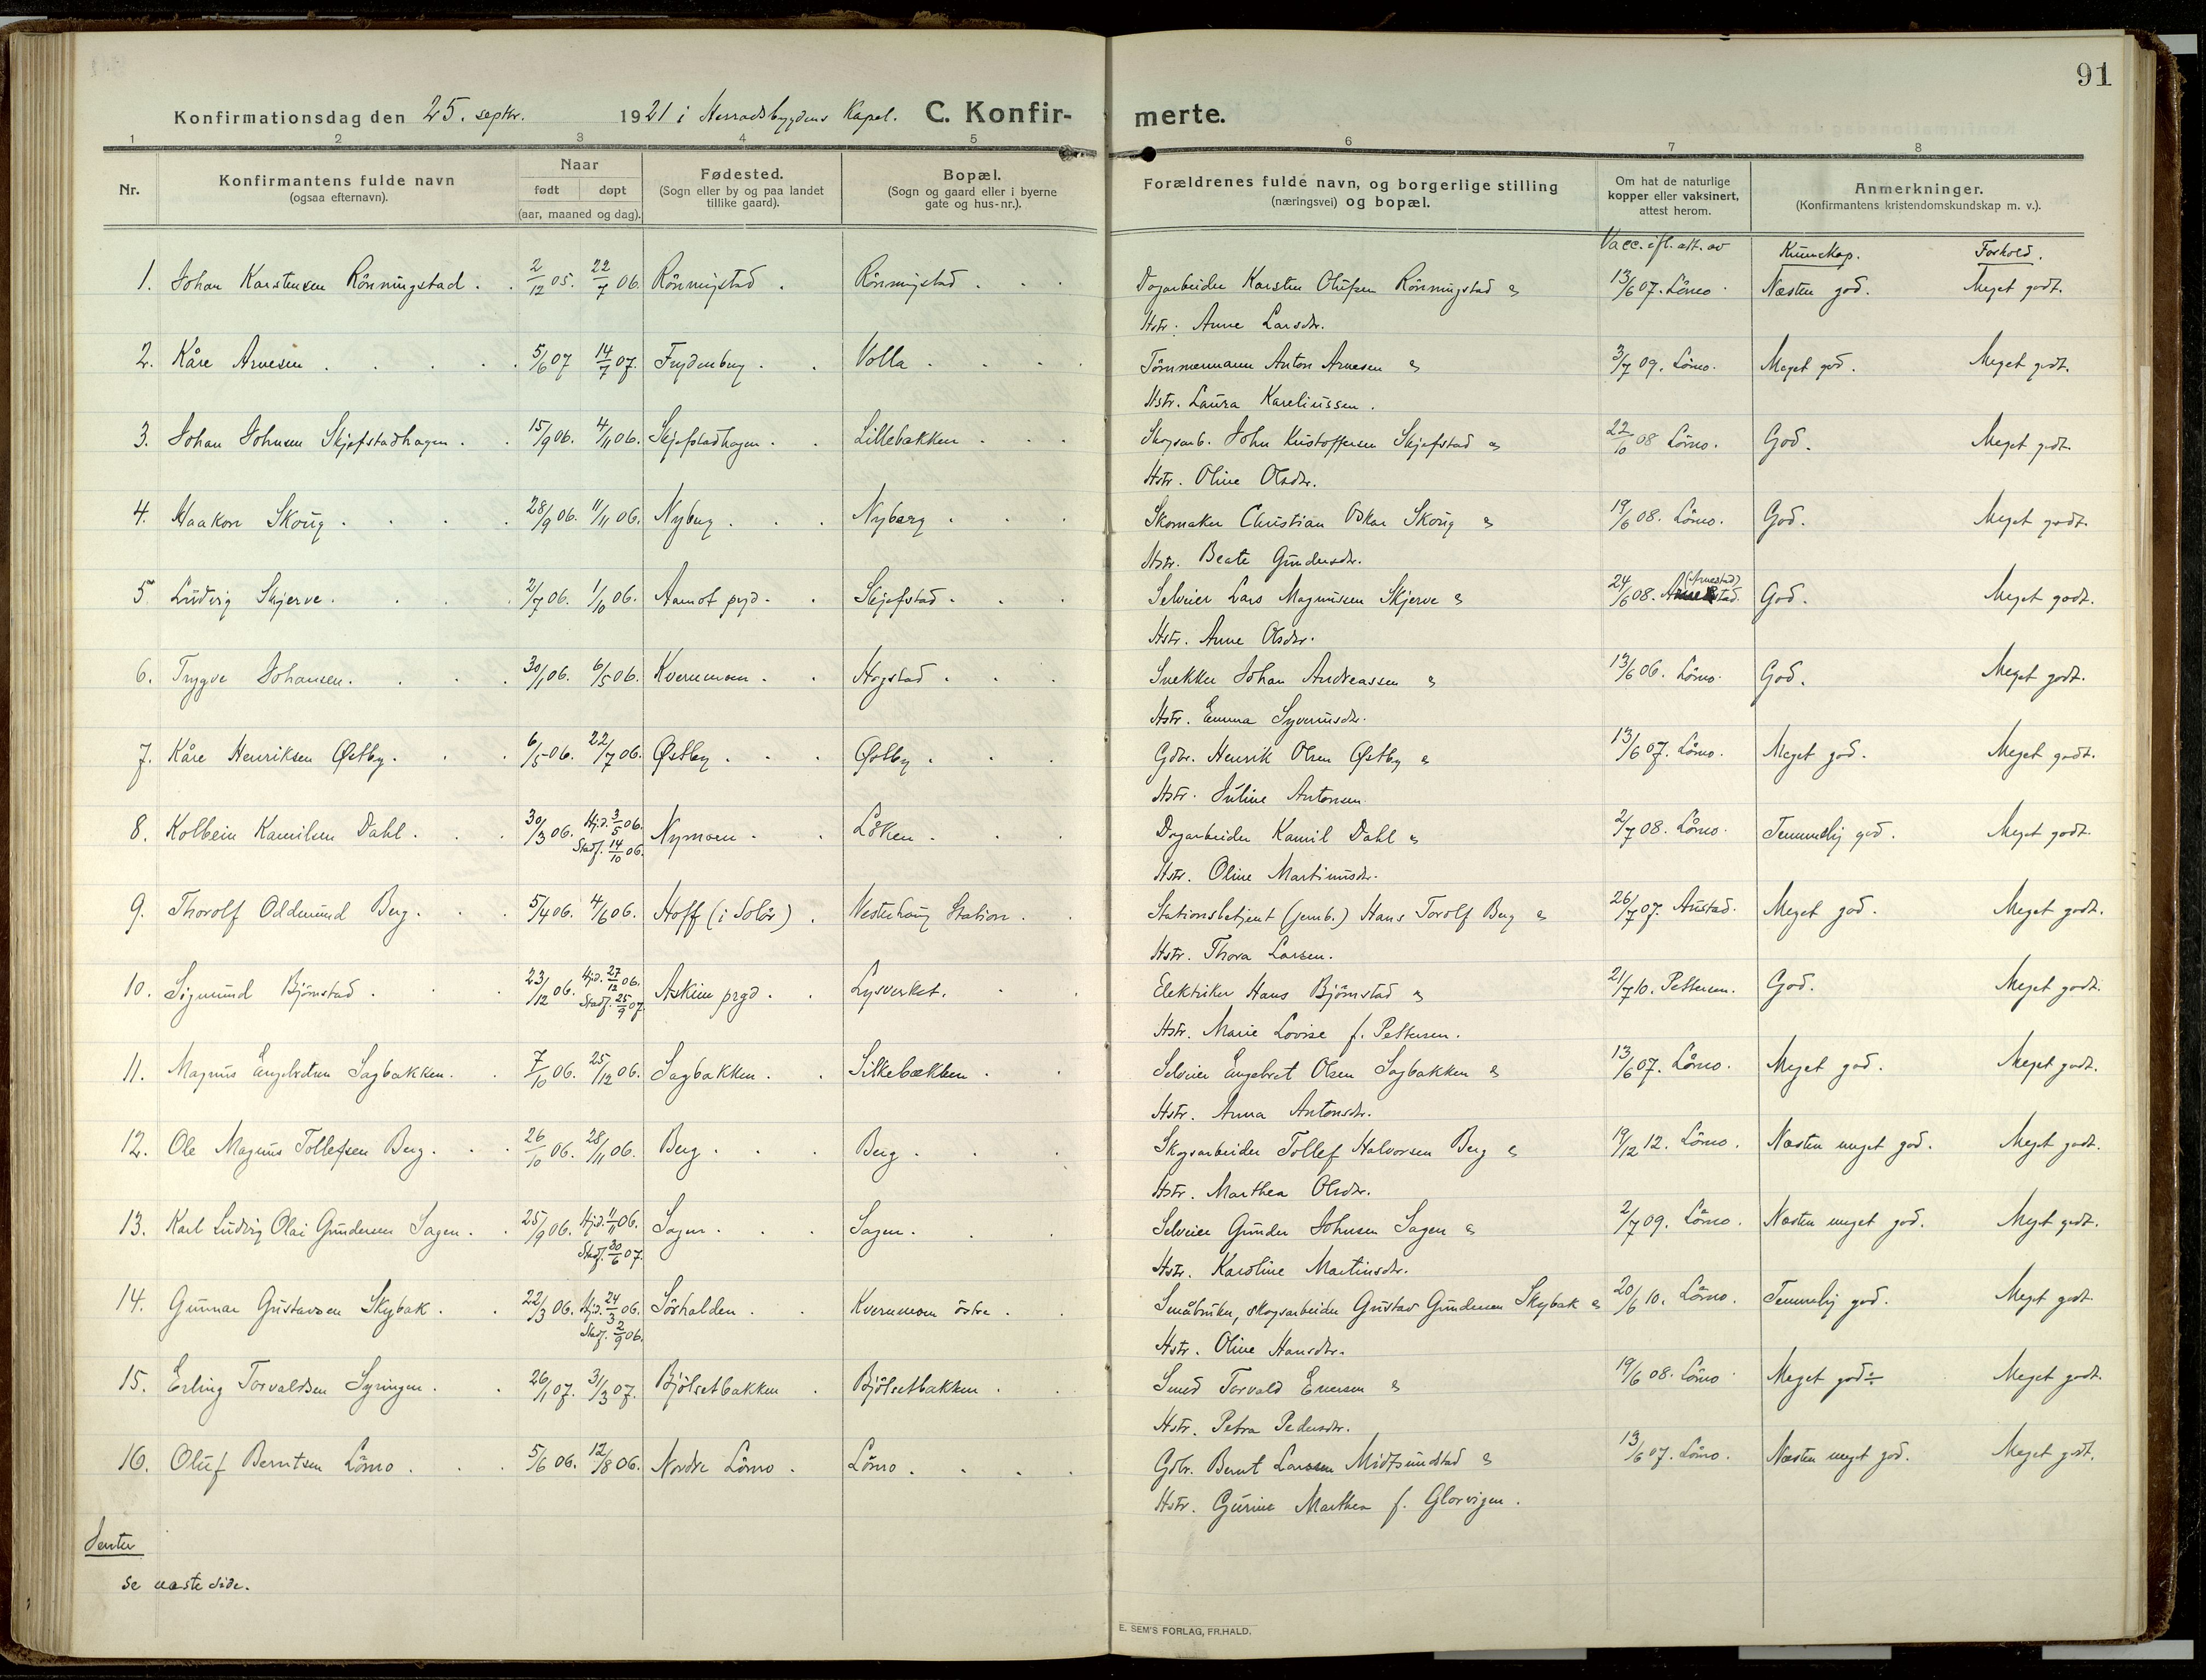 91
Konfirmationsdag den 25. septbr. 1921 i Herradsbygdens Kapel. C. Konfirmerte.
1 2 3 4 5 6 7 8
Nr. Konfirmantens fulde navn (ogsaa efternavn). Naar født døpt (aar, maaned og dag). Fødested. (Sogn eller by og paa landet tillike gaard). Bopæl. (Sogn og gaard eller i byerne gate og hus-nr.). Forældrenes fulde navn, og borgerlige stilling (næringsvei) og bopæl. Om hat de naturlige kopper eller vaksinert, attest herom. Anmerkninger. (Konfirmantens kristendomskundskap m. v.).
Vacc. ifl. att. av Kunnskap. Forhold.
1. Johan Karstensen Rönningstad. 2/12 05. 22/7 06. Rönningstad. Rönningstad. Dagarbeider Karsten Olufsen Rönningstad & 13/6 07. Lömo. Næsten god. Meget godt.
Hstr. Anne Larsdtr.
2. Kåre Arnesen. 5/6 07 14/7 07. Frydenberg. Volla. Tömmermann Anton Arnesen & 3/7 09. Lömo. Meget god. Meget godt.
Hstr. Laura Kareliussen.
3. Johan Johnsen Skjefstadhagen. 15/9 06. 4/11 06. Skjefstadhagen. Lillebakken. Skogsarb. John Kristoffersen Skjefstad & 22/10 08 Lömo. God. Meget godt.
Hstr. Oline Olsdtr.
4. Haakon Skoug. 28/9 06. 11/11 06. Nyberg. Nyberg. Skomaker Christian Oskar Skoug & 19/6 08. Lömo. God. Meget godt.
Hstr. Beate Gundersdtr.
5. Ludvig Skjerve. 2/7 06. 1/10 06. Aamot prgd. Skjefstad. Selveier Lars Magnussen Skjerve & 24/6 08. (Arnestad) God. Meget godt.
Hstr. Anne Olsdtr.
6. Trygve Johansen. 30/1 06. 6/5 06. Kvernmoen. Hogstad. Snekker Johan Andreassen & 13/6 06. Lömo. God. Meget godt.
Hstr. Emma Syverinsdtr.
7. Kåre Henriksen Østby. 6/5 06. 22/7 06. Østby. Østby. Gdbr. Henrik Olsen Østby & 13/6 07. Lömo. Meget god. Meget godt.
Hstr. Juline Antonsen.
8. Kolbein Kamilsen Dahl. 30/3 06. Hj.d. 3/5 06. Stadf. 14/10 06. Nymoen. Löken. Dagarbeider Kamil Dahl & 2/7 08. Lömo. Temmelig god. Meget godt.
Hstr. Oline Martinusdtr.
9. Thorolf Oddmund Berg. 5/4 06. 4/6 06. Hoff (i Solör). Vesterhaug Station. Stationsbetjent (jernb.) Hans Torolf Berg & 26/7 07. Austad. Meget god. Meget godt.
Hstr. Thora Larsen.
10. Sigmund Björnstad. 23/12 06. Hj.d. 27/12 06. Stadf. 25/9 07. Askim prgd. Lysverket. Elektriker Hans Björnstad & 21/7 10. Pettersen. God. Meget godt.
Hstr. Marie Lovise f. Pettersen.
11. Magnus Engebretsen Sagbakken. 7/10 06. 25/12 06. Sagbakken. Silkebækken. Selveier Engebret Olsen Sagbakken & 13/6 07. Lömo. Meget god. Meget godt.
Hstr. Anna Antonsdtr.
12. Ole Magnus Tollefsen Berg. 26/10 06. 28/11 06. Berg. Berg. Skogsarbeider Tollef Halvorsen Berg & 19/12 12. Lömo. Næsten meget god. Meget godt.
Hstr. Marthea Olsdtr.
13. Karl Ludvig Olai Gundersen Sagen. 25/9 06. Hj.d. 11/11 06. Stadf. 30/6 07. Sagen. Sagen. Selveier Gunder Johnsen Sagen & 2/7 09. Lömo. Næsten meget god. Meget godt.
Hstr. Karoline Martinsdtr.
14. Gunnar Gustavsen Skybak. 22/3 06. Hj.d. 24/3 06. Stadf. 2/9 06. Sörhalden. Kvernmoen östre. Småbruker, skogsarbeider Gustav Gundersen Skybak & 20/6 10. Lömo. Temmelig god. Meget godt.
Hstr. Oline Hansdtr.
15. Erling Torvaldsen Syringen. 26/1 07. 31/3 07. Bjölsetbakken. Bjölsetbakken. Smed Torvald Enersen & 19/6 08. Lömo. Meget god ÷ Meget godt.
Hstr. Petra Pedersdtr.
16. Oluf Berntsen Lömo. 5/6 06. 12/8 06. Nordre Lömo. Lömo. Gdbr. Bernt Larssen Midtsundstad & 13/6 07. Lömo. Næsten meget god. Meget godt.
Hstr. Gurine Marthea f. Glorvigen.
Jenter
se næste side.
E. SEM'S FORLAG, FR.HALD.